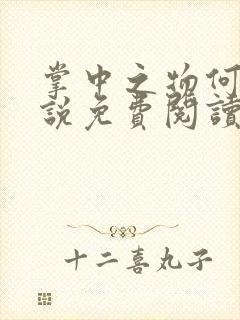 掌中之物何
說免費閱讀
十二喜丸子